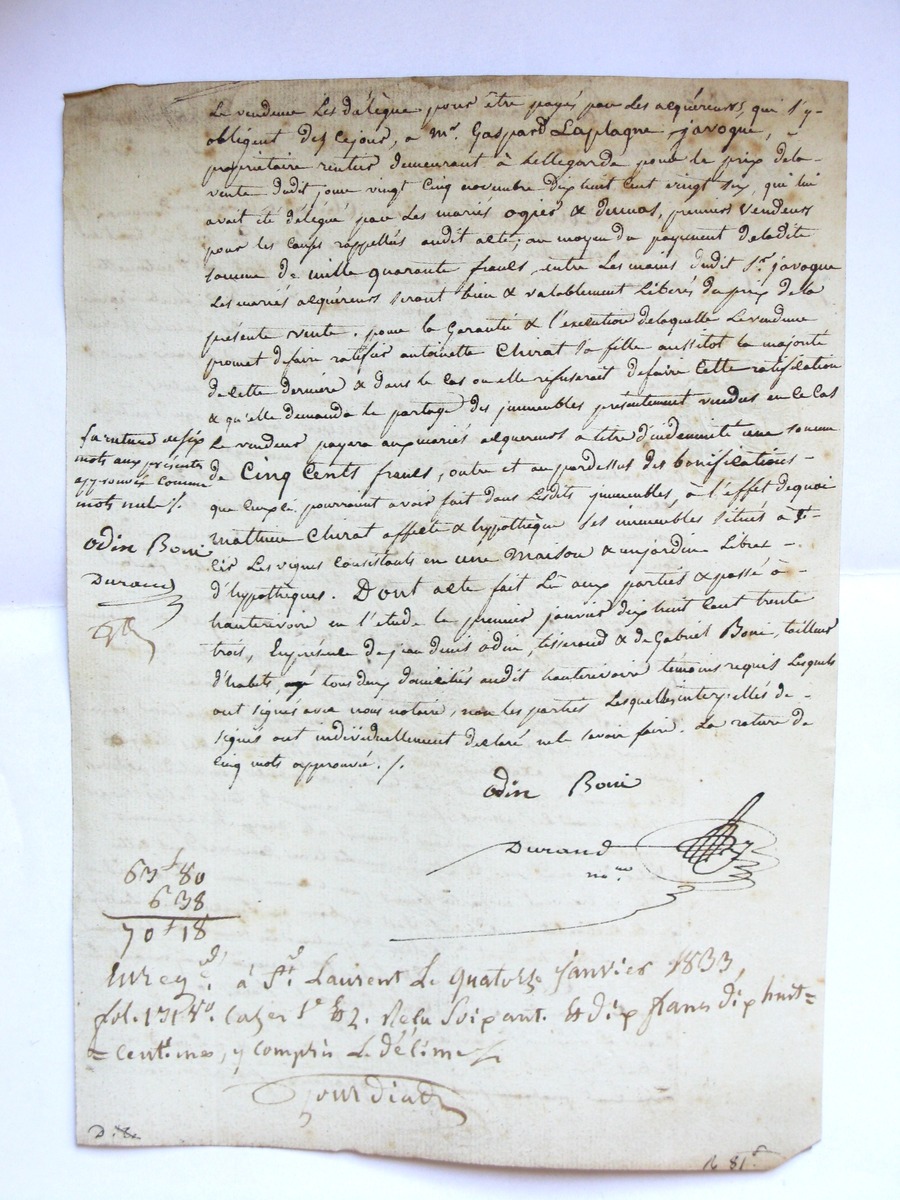 Le vendeur les délègue pour être payés par les acquéreurs, qui s'y-
obligent des cejour, a mr. Gaspard Laplagne javogue,
propriétaire rentier demeurant à Bellegarde pour le prix dela-
vente dudit jour vingt cinq novembre dix huit cent vingt six, qui lui
avait été délégué par les mariés ogier & dumas, premiers vendeurs
pour les causes rappellés audit acte; au moyen du payement deladite
somme de mille quarante francs entre les mains dudit Sr. javogue
les mariés acquéreurs seront bien & valablement libérés du prix de la
présente vente. pour la Garantie & l'exécution delaquelle le vendeur
promet defaire ratifier antoinette Chirat sa fille aussitot la majorité
de cette dernière & dans le cas ou elle refuserait defaire cette ratification
& qu'elle demanda le partage des immeubles présentement vendus en ce cas
le vendeur payera aux mariés acquereurs a titre d'indemnité une somme
de Cinq Cents francs, outre et au pardessus des bonifications-
que ceux ci pourraient avoir fait dans lesdits immeubles, à l'effet dequoi
mathieu Chirat affecte & hypothèque ses immeubles situés à St-
Cir les vignes consistants en une maison & un jardin libres -
d'hypothèques. Dont acte fait lu aux parties & passé à-
hauterivoire en l'étude le premier janvier dix huit cent trente
trois, En présence de jean denis odin, tisserand & de Gabriel Boni, tailleur
d'habits, tous deux domiciliés audit hauterivoire témoins requis lesquels
ont signés avec nous notaire, non les parties lesquelles interpellés de-
signés ont individuellement déclaré ne le savoir faire. La rature de
cinq mots approuvée. /.
la rature de six
mots aux présentes
approuvée comme
mots nuls /.
odin Boni
Durand
odin Boni
Durand
nore
63 f 80
6 38
70 f 18
Enregé. à St. Laurent Le quatorze janvier 1833,
fol. 131 Ro. Cases 1e & 2. Reçu Soixante Et dix francs dix huit=
=Centimes, y compris Le décime /.
Jourdiad